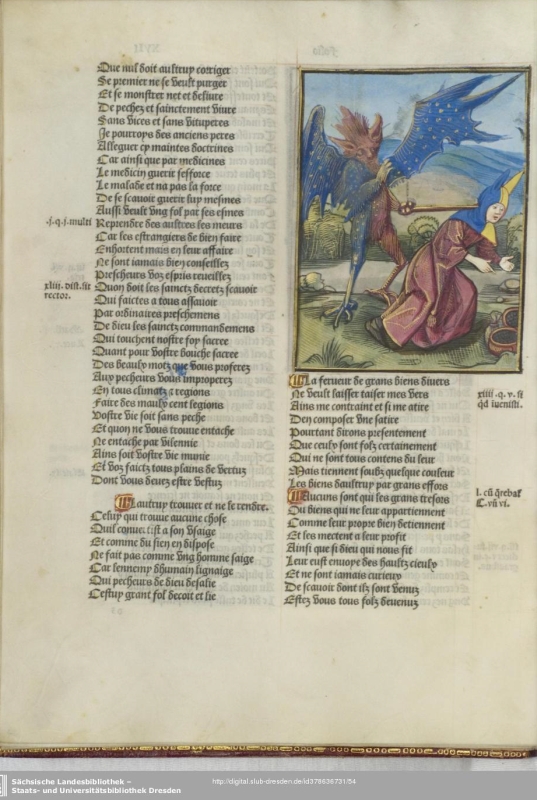 Que nul doit aultruy corriger
Se premier ne se veult purger
Et se monstrer net et deliure
De pechez et sainctement viure
Sans vices et sans vituperes
Je pourroys des anciens peres
Alleguer cy maintes doctrines
Car ainsi que par medicines
Le medicin guerit sefforce
Le malade et na pas la force
De se scauoir guerir luy mesmes
Aussi veult vng fol par ses esmes
.j.q.j.multi
Reprendre des aultres les meurs
Car les estrangiers de bien faire
Enhortent mais en leur affaire
Ne sont iamais bien conseillez
Prescheurs voz espris reueillez
xliii. dist. sit
rector.
Quon doit les sainctz decretz scauoir
Qui faictes a tous assauoir
Par ordinaires preschemens
De dieu les sainctz commandemens
Qui touchent nostre foy sacree
Quant pour vostre bouche sacree
Des beaulx motz que vous proferez
Aux pecheurs vous improperez
En tous climatz z regions
Faire des maulx cent legions
Vostre vie soit sans peche
Et quon ne vous trouue entache
Ne entache par vilennie
Ains soit vostre vie munie
Et voz faictz tous plains de vertus
Dont vous deuez estre vestus
autruy trouuer et ne le rendre.
Celuy qui trouue aucune chose
Quil conuertist a son vsaige
Et comme du sien en dispose
Ne fait pas comme vng homme saige
Car lennemy dhumain lignaige
Qui pecheurs de dieu desalie
Cestuy grant fol decoit et lie
La ferueur de grans biens diuers
Ne veult laisser taiser mes vers
xiiii.q.v.si
qd inuenisti.
Ains me contraint et si me atire
Den composer vne satire
Pourtant dirons presentement
Que ceulx sont folz certainement
Qui ne sont tous contens du leur
Mais tiennent soubz quelque couleur
Les biens daultruy par grans effors
Aucuns sont qui les grans tresors
Ou biens qui ne leur appartiennent
Comme leur propre bien detiennent
Et les mectent a leur profit
Ainsi que si dieu qui nous fit
Leur eust enuoye des haultz cieulx
Et ne sont iamais curieux
De scauoir dont ilz sont venuz
Estez vous tous folz deuenuz
Sächsische Landesbibliothek –
Staats- und Universitätsbibliothek Dresden
http://digital.slub-dresden.de/id378636731/54